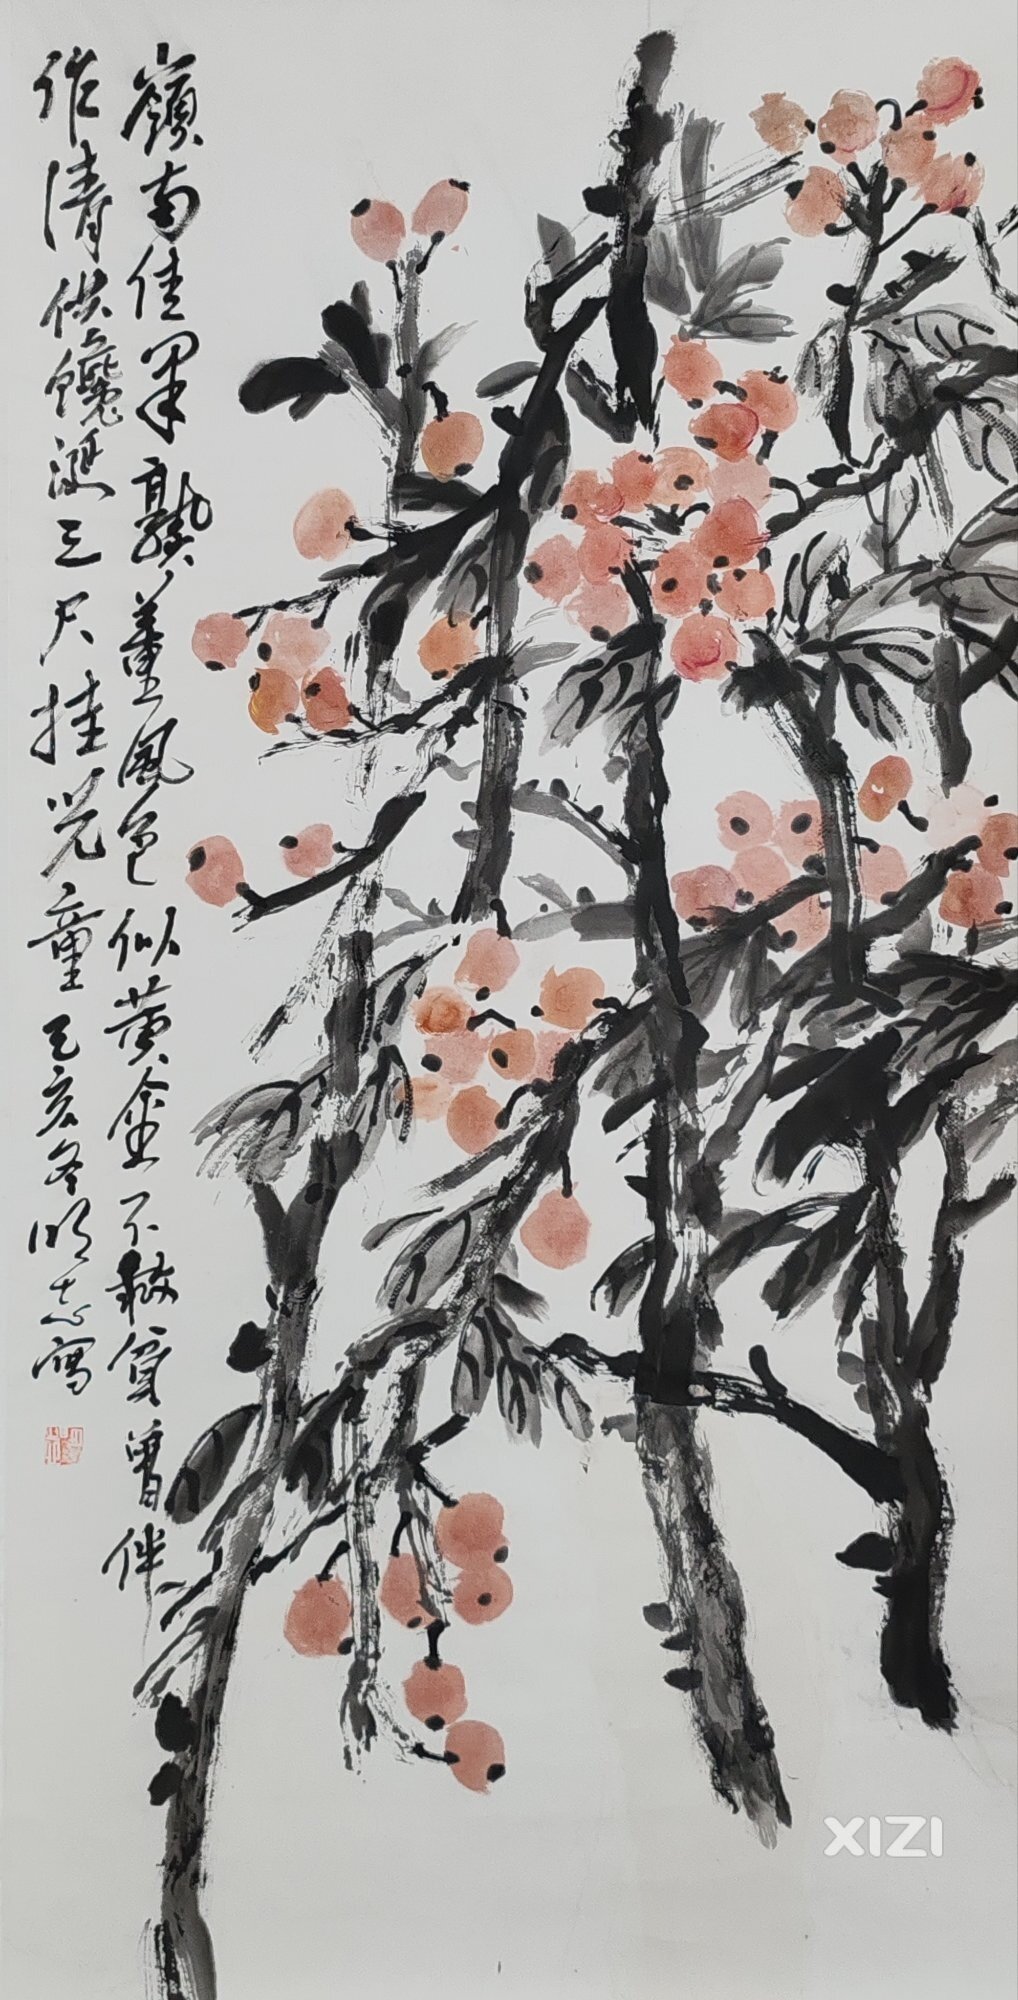 嶺南佳果熟薰風色似黄金不救貧曾伴
作清供饞涎三尺挂兒童己亥冬明志寫
XIZI